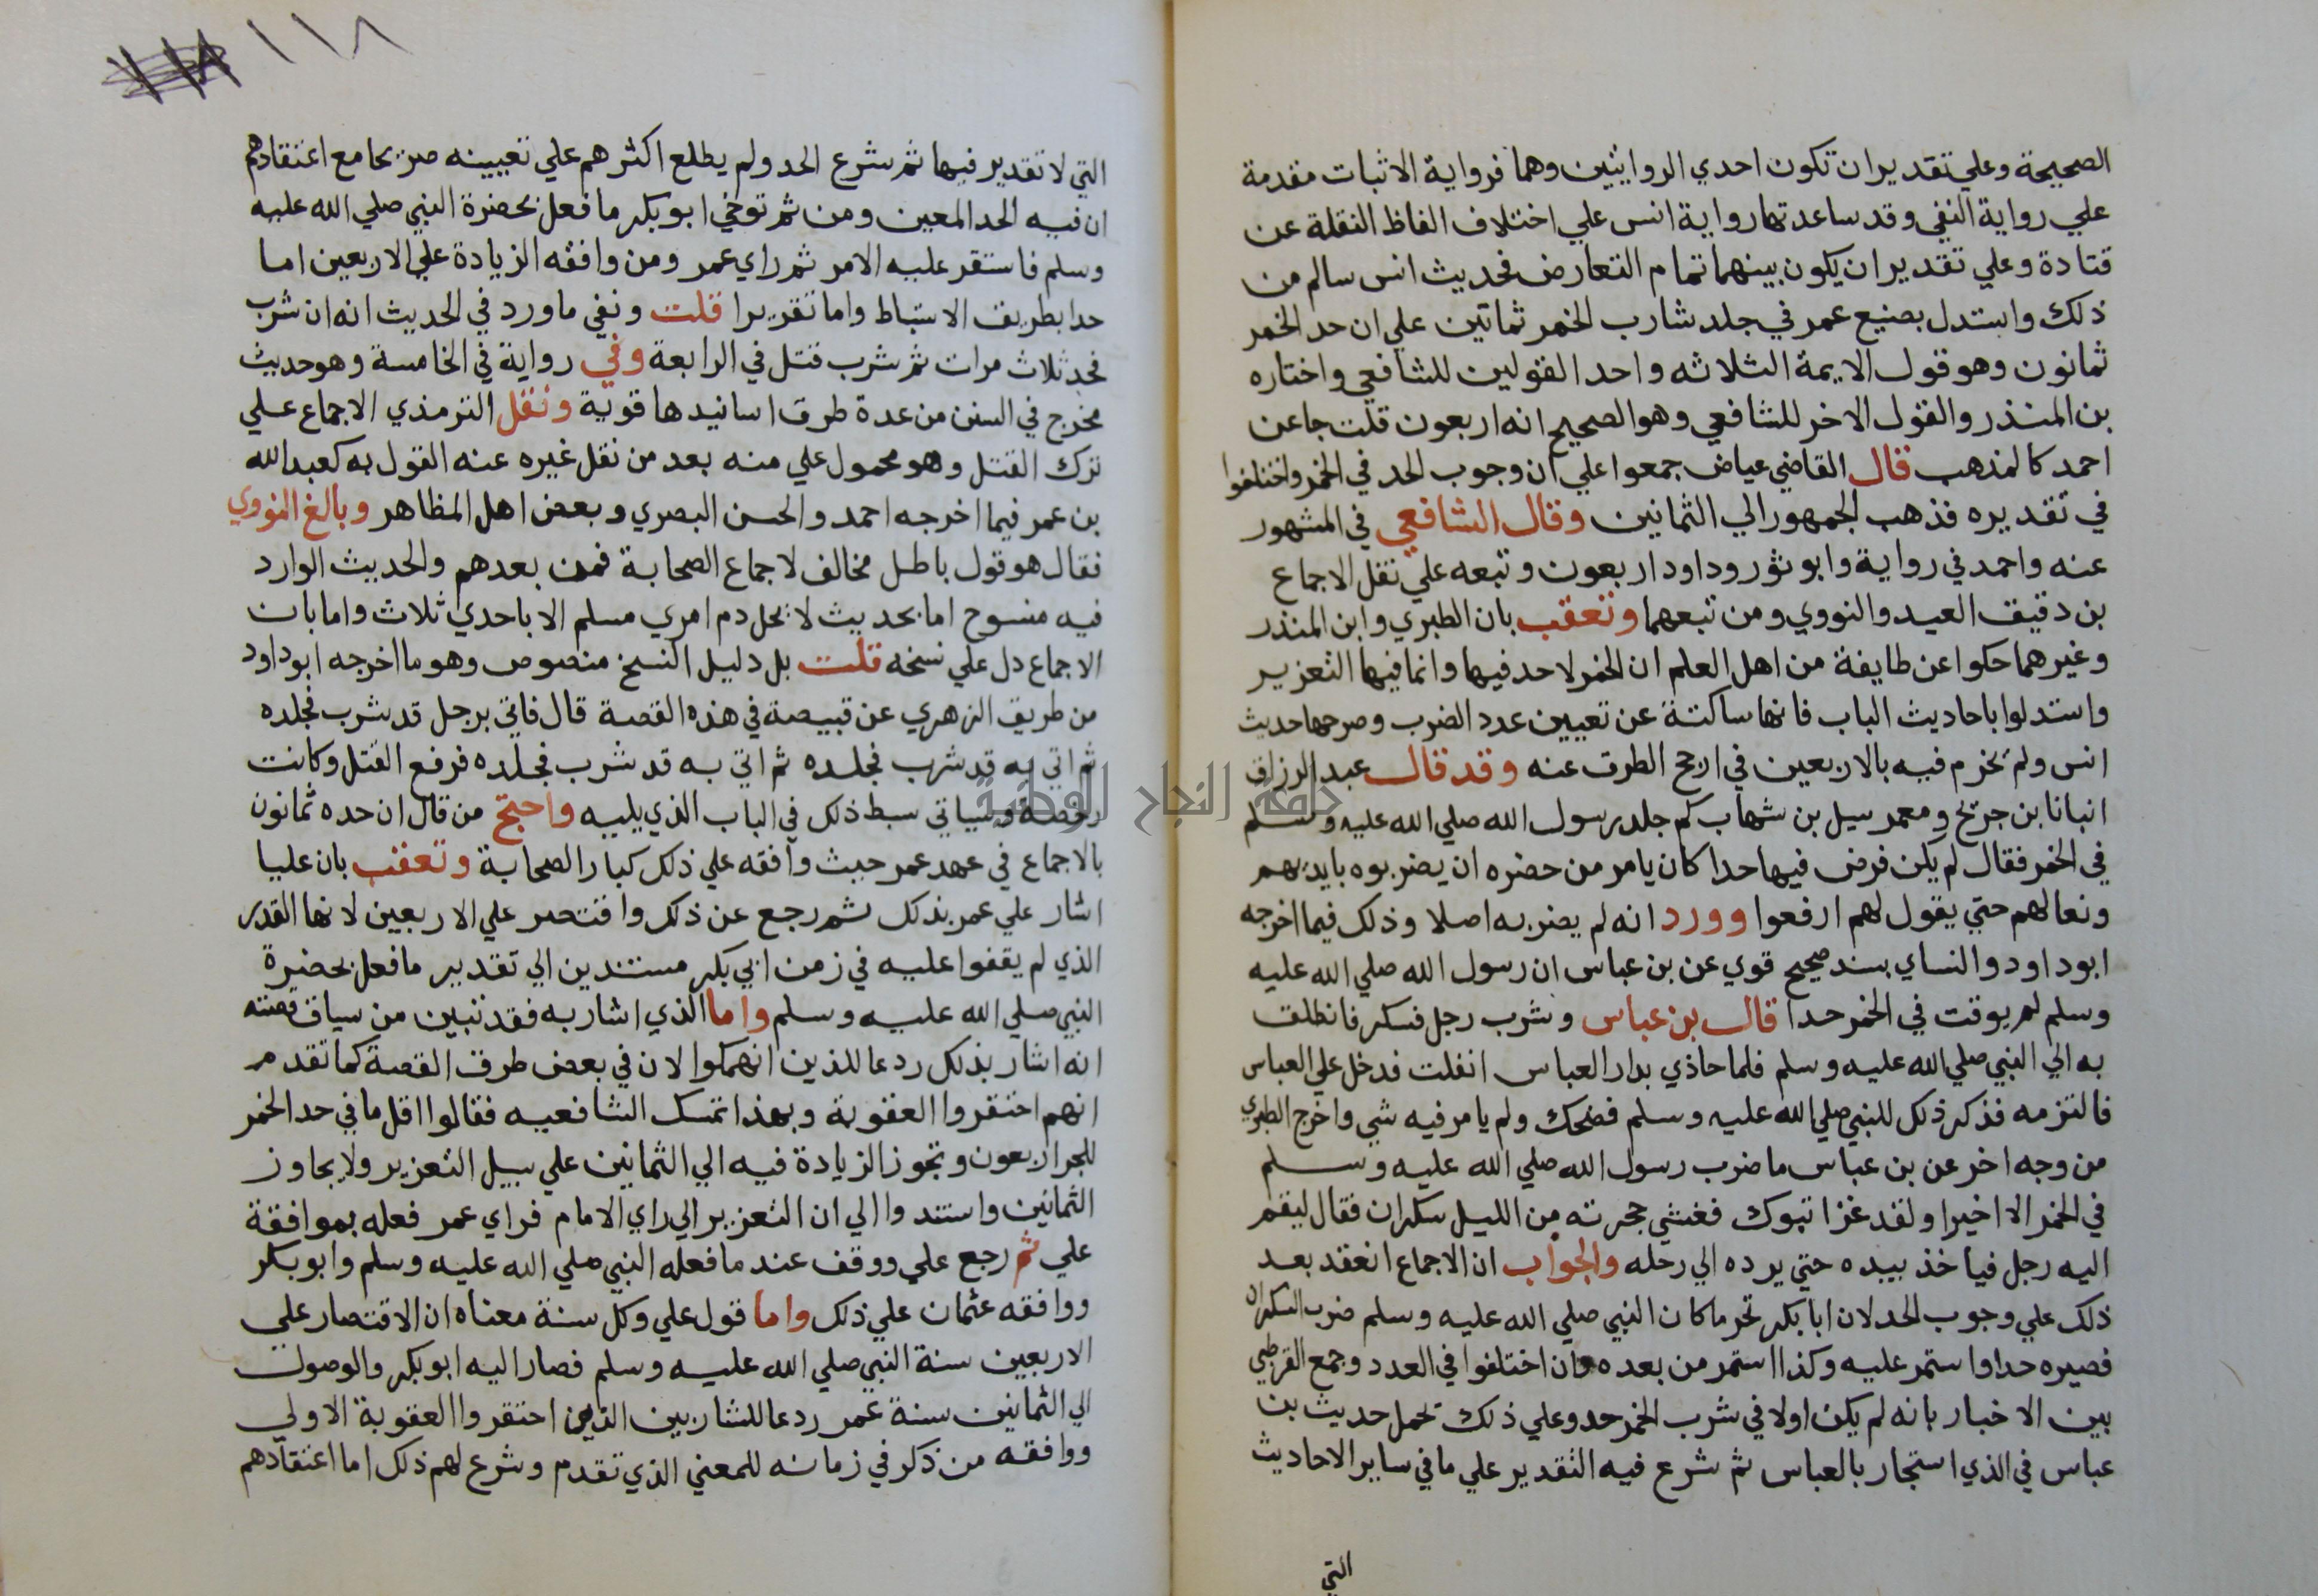 الصحيحة وعلي تقدير ان تكون احدي الروايتين وهما فرواية الاثبات مقدمة
علي رواية النفي وقد ساعدتها رواية انس علي اختلاف الفاظ النقلة عن
قتادة وعلي تقدير ان يكون بينهما تمام التعارض فحديث انس سالم من
ذلك واستدل بصنيع عمر في جلد شارب الخمر ثمانين علي ان حد الخمر
ثمانون وهو قول الايمة الثلاثه واحد القولين للشافعي واختاره
بن المنذر والقول الاخر للشافعي وهو الصحيح انه اربعون قلت جا عن
احمد كالمذهب قال القاضي عياض جمعوا علي ان وجوب الحد في الخمر واختلفوا
في تقديره فذهب الجمهور الي الثمانين وقال الشافعي في المشهور
عنه واحمد في رواية وابو ثور وداود اربعون وتبعه علي نقل الاجماع
بن دقيق العيد والنووي ومن تبعهما وتعقب بان الطبري وابن المنذر
وغيرهما حكوا عن طايفة من اهل العلم ان الخمر لا حد فيها وانما فيها التعزير
واستدلوا باحاديث الباب فانها ساكتة عن تعيين عدد الضرب وصرحها حديث
انس ولم يخرم فيه بالاربعين في ارجح الطرق عنه وقد قال عبد الرزاق
انبانا بن جريج ومعمر سيل بن شهاب كم جلد رسول الله صلي الله عليه وسلم
في الخمر فقال لم يكن فرض فيها حدا كان يامر من حضره ان يضربوه بايديهم
ونعالهم حتي يقول لهم ارفعوا وورد انه لم يضربه اصلا وذلك فيما اخرجه
ابو داود والنساي بسند صحيح قوي عن بن عباس ان رسول الله صلي الله عليه
وسلم لم يوقت في الخمر حدا قال بن عباس وشرب رجل فسكر فانطلق
به الي النبي صلي الله عليه وسلم فلما حاذي بدار العباس انفلت فدخل علي العباس
فالتزمه فذكر ذلك للنبي صلي الله عليه وسلم فضحك ولم يامر فيه شي واخرج الطبري
من وجه اخر عن بن عباس ما ضرب رسول الله صلي الله عليه وسلم
في الخمر الا اخيرا ولقد غزا تبوك فغشي حجرته من الليل سكران فقال ليقم
اليه رجل فياخذ بيده حتي يرده الي رحله والجواب ان الاجماع انعقد بعد
ذلك علي وجوب الحد لان ابا بكر تحر ما كان النبي صلي الله عليه وسلم ضرب السكران
فصيره حدا واستمر عليه وكذا استمر من بعده وان اختلفوا في العدد وجمع القرطبي
بين الاخبار بانه لم يكن اولا في شرب الخمر حد وعلي ذلك تحمل حديث بن
عباس في الذي استجار بالعباس ثم شرع فيه التقدير علي ما في ساير الاحاديث
التي
١١٨
التي لا تقدير فيها ثم شرع الحد ولم يطلع اكثرهم علي تعيينه صريحا مع اعتقادهم
ان فيه الحد المعين ومن ثم توخي ابو بكر ما فعل بحضرة النبي صلي الله عليه
وسلم فاستقر عليه الامر ثم راي عمر ومن وافقه الزيادة علي الاربعين اما
حدا بطريق الاستباط واما تقريرا قلت ونفي ما ورد في الحديث انه ان شرب
فحد ثلاث مرات ثم شرب قتل في الرابعة وفي رواية في الخامسة وهو حديث
مخرج في السنن من عدة طرق اسانيدها قوية ونقل الترمذي الاجماع علي
ترك القتل وهو محمول علي منه بعد من نقل غيره عنه القول به كعبد الله
بن عمر فيما اخرجه احمد والحسن البصري وبعض اهل المظاهر وبالغ النووي
فقال هو قول باطل مخالف لاجماع الصحابة فمن بعدهم والحديث الوارد
فيه منسوح اما بحديث لا يحل دم امري مسلم الا باحدي ثلاث واما بان
الاجماع دل علي نسخه قلت بل دليل النسخ منصوص وهو ما اخرجه ابو داود
من طريق الزهري عن قبيصة في هذه القصة قال فاتي برجل قد شرب فجلده
ثم اتي به قد شرب فجلده ثم اتي به قد شرب فجلده فرفع القتل وكانت
رخصة وسياتي سبط ذلك في الباب الذي يليه واحتج من قال ان حده ثمانون
بالاجماع في عهد عمر حيث وافقه علي ذلك كبار الصحابة وتعقب بان عليا
اشار علي عمر بذلك ثم رجع عن ذلك واقتصر علي الاربعين لانها القدر
الذي لم يقفوا عليه في زمن ابي بكر مستندين الي تقدير ما فعل بحضرة
النبي صلي الله عليه وسلم واما الذي اشار به فقد تبين من سياق قصته
انه اشار بذلك ردعا للذين انهمكوا لان في بعض طرق القصة كما تقدم
انهم احتقروا العقوبة وبهذا تمسك الشافعيه فقالوا اقل ما في حد الخمر
للحر اربعون وتجوز الزيادة فيه الي الثمانين علي سبيل التعزير ولا يجاوز
الثمانين واستندوا الي ان التعزير الي راي الامام فراي عمر فعله بموافقة
علي ثم رجع علي ووقف عند ما فعله النبي صلي الله عليه وسلم وابو بكر
ووافقه عثمان علي ذلك واما قول علي وكل سنة معناه ان الاقتصار علي
الاربعين سنة النبي صلي الله عليه وسلم فصار اليه ابو بكر والوصول
الي الثمانين سنة عمر ردعا للشاربين الذين احتقروا العقوبة الاولي
ووافقه من ذكر في زمانه للمعني الذي تقدم وشرع لهم ذلك اما اعتقادهم
جامعة النجاح الوطنية